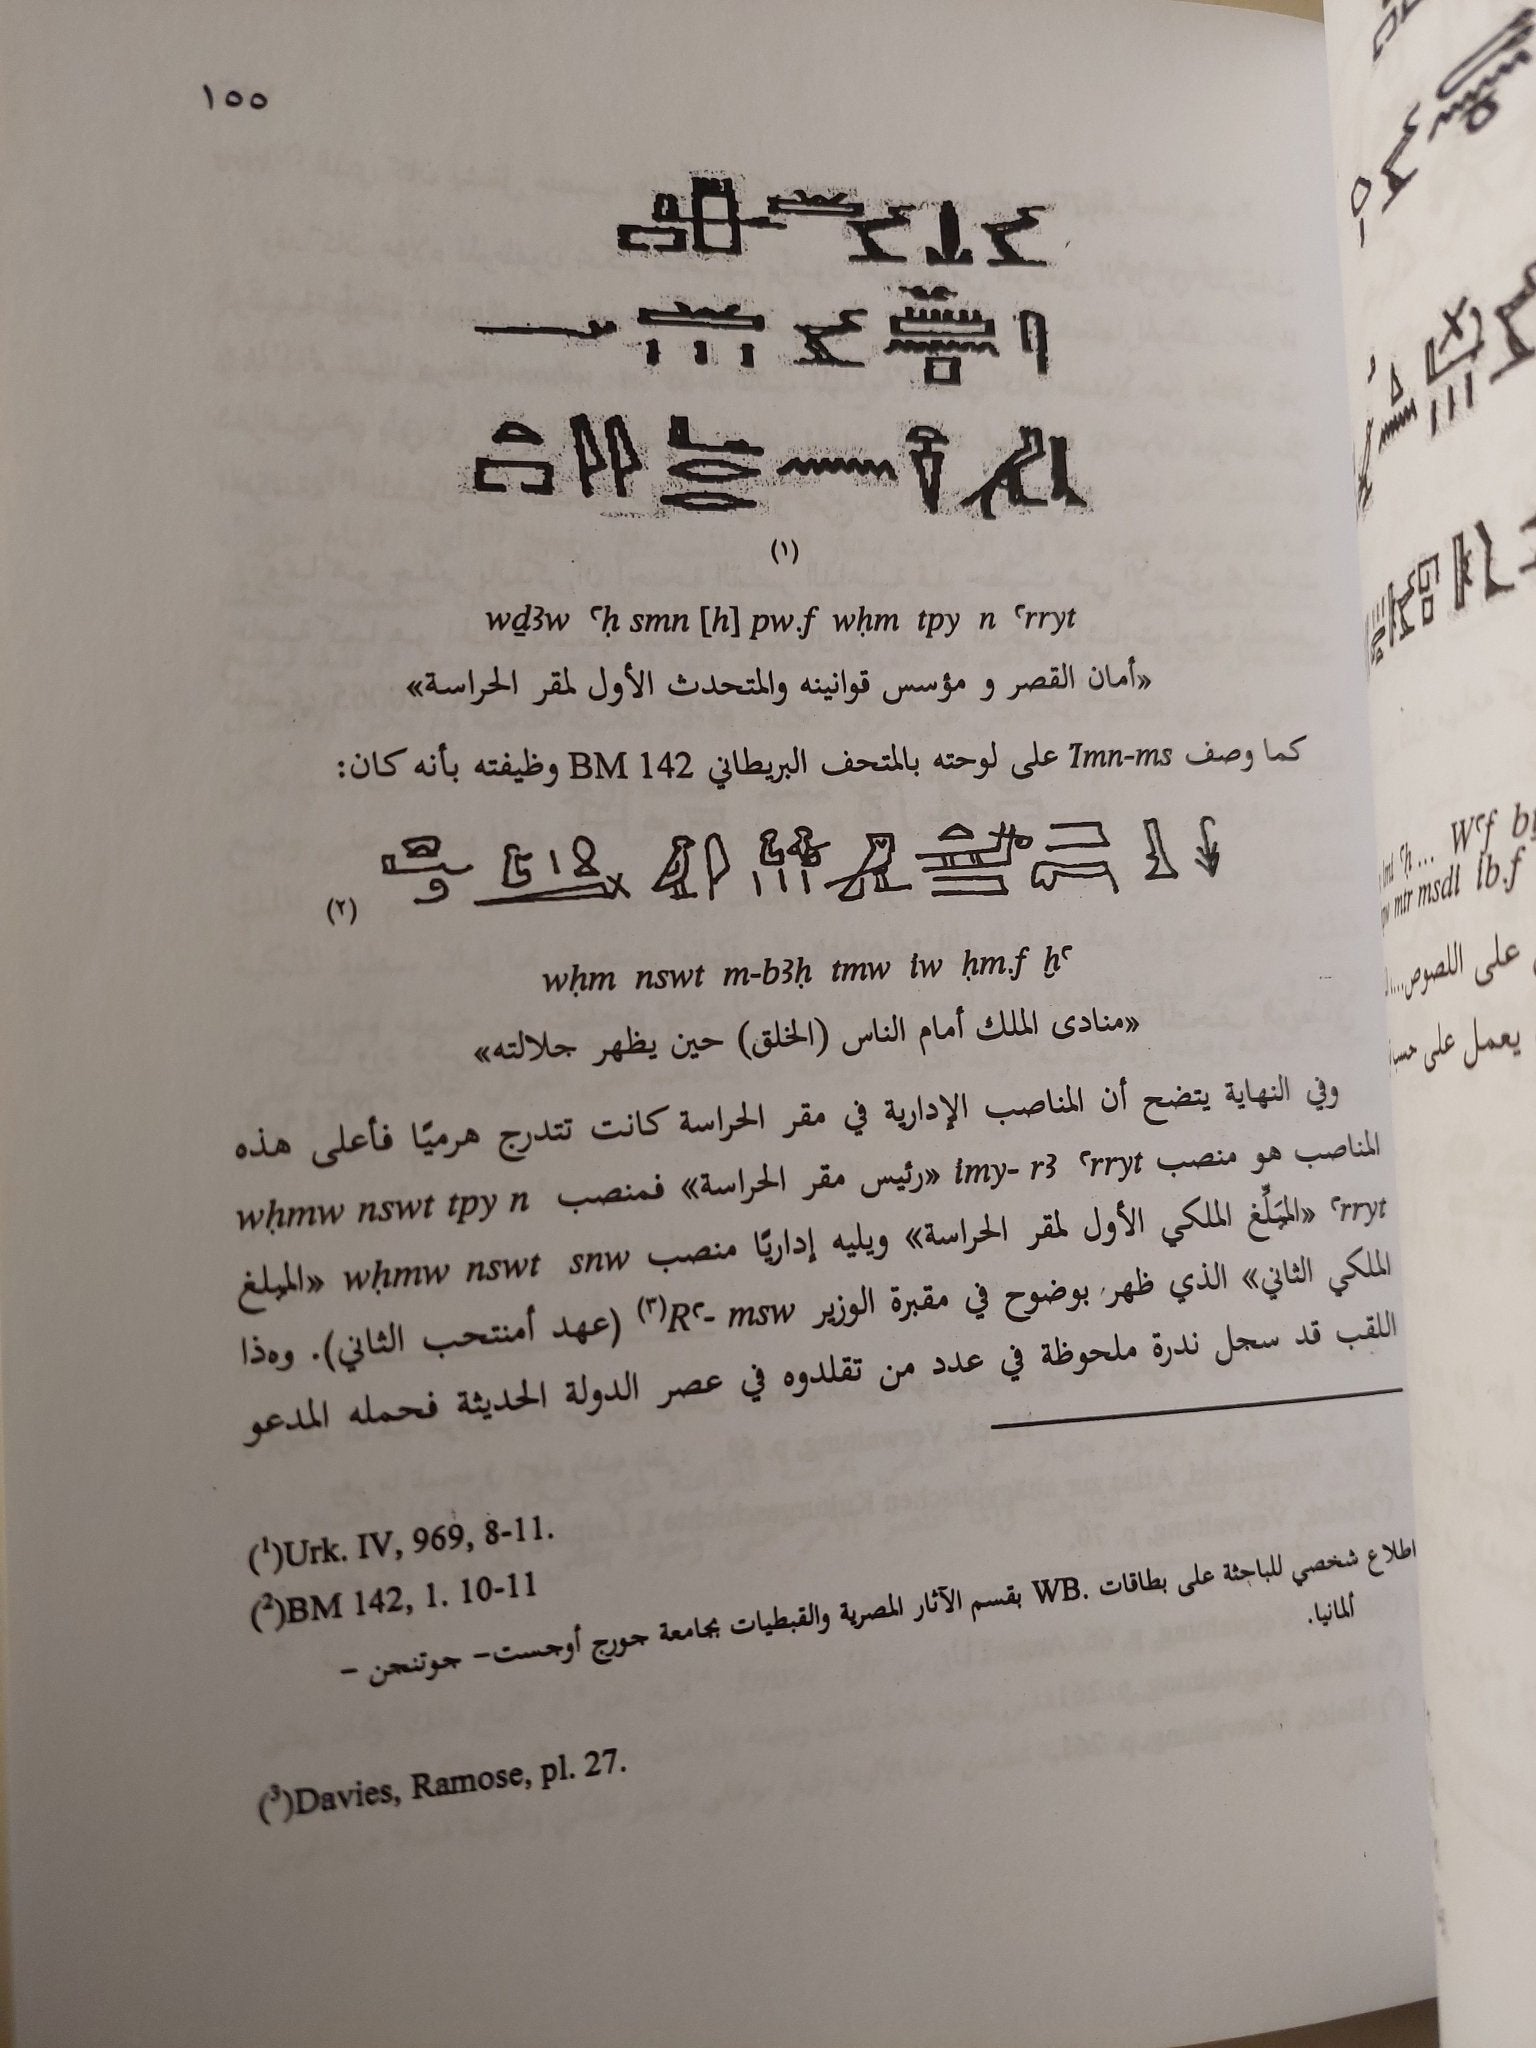 ١٥٥
(١)
wḏꜣw ꜥḥ smn [h] pw.f wḥm tpy n ꜥrryt
«أمان القصر و مؤسس قوانينه والمتحدث الأول لمقر الحراسة»
كما وصف Imn-ms على لوحته بالمتحف البريطاني BM 142 وظيفته بأنه كان:
(٢)
wḥm nswt m-bꜣḥ tmw iw ḥm.f ḫꜥ
«منادى الملك أمام الناس (الخلق) حين يظهر جلالته»
وفي النهاية يتضح أن المناصب الإدارية في مقر الحراسة كانت تتدرج هرميًا فأعلى هذه
المناصب هو منصب imy- rꜣ ꜥrryt «رئيس مقر الحراسة» فمنصب wḥmw nswt tpy n
ꜥrryt «المبَلِّغ الملكي الأول لمقر الحراسة» ويليه إداريًا منصب wḥmw nswt snw «المبلغ
الملكي الثاني» الذي ظهر بوضوح في مقبرة الوزير Rꜥ- msw(٣) (عهد أمنتحب الثاني). وهذا
اللقب قد سجل ندرة ملحوظة في عدد من تقلدوه في عصر الدولة الحديثة فحمله المدعو
(1)Urk. IV, 969, 8-11.
(2)BM 142, 1. 10-11
اطلاع شخصي للباحثة على بطاقات WB. بقسم الآثار المصرية والقبطيات بجامعة جورج أوجست- جوتنجن -
ألمانيا.
(3)Davies, Ramose, pl. 27.